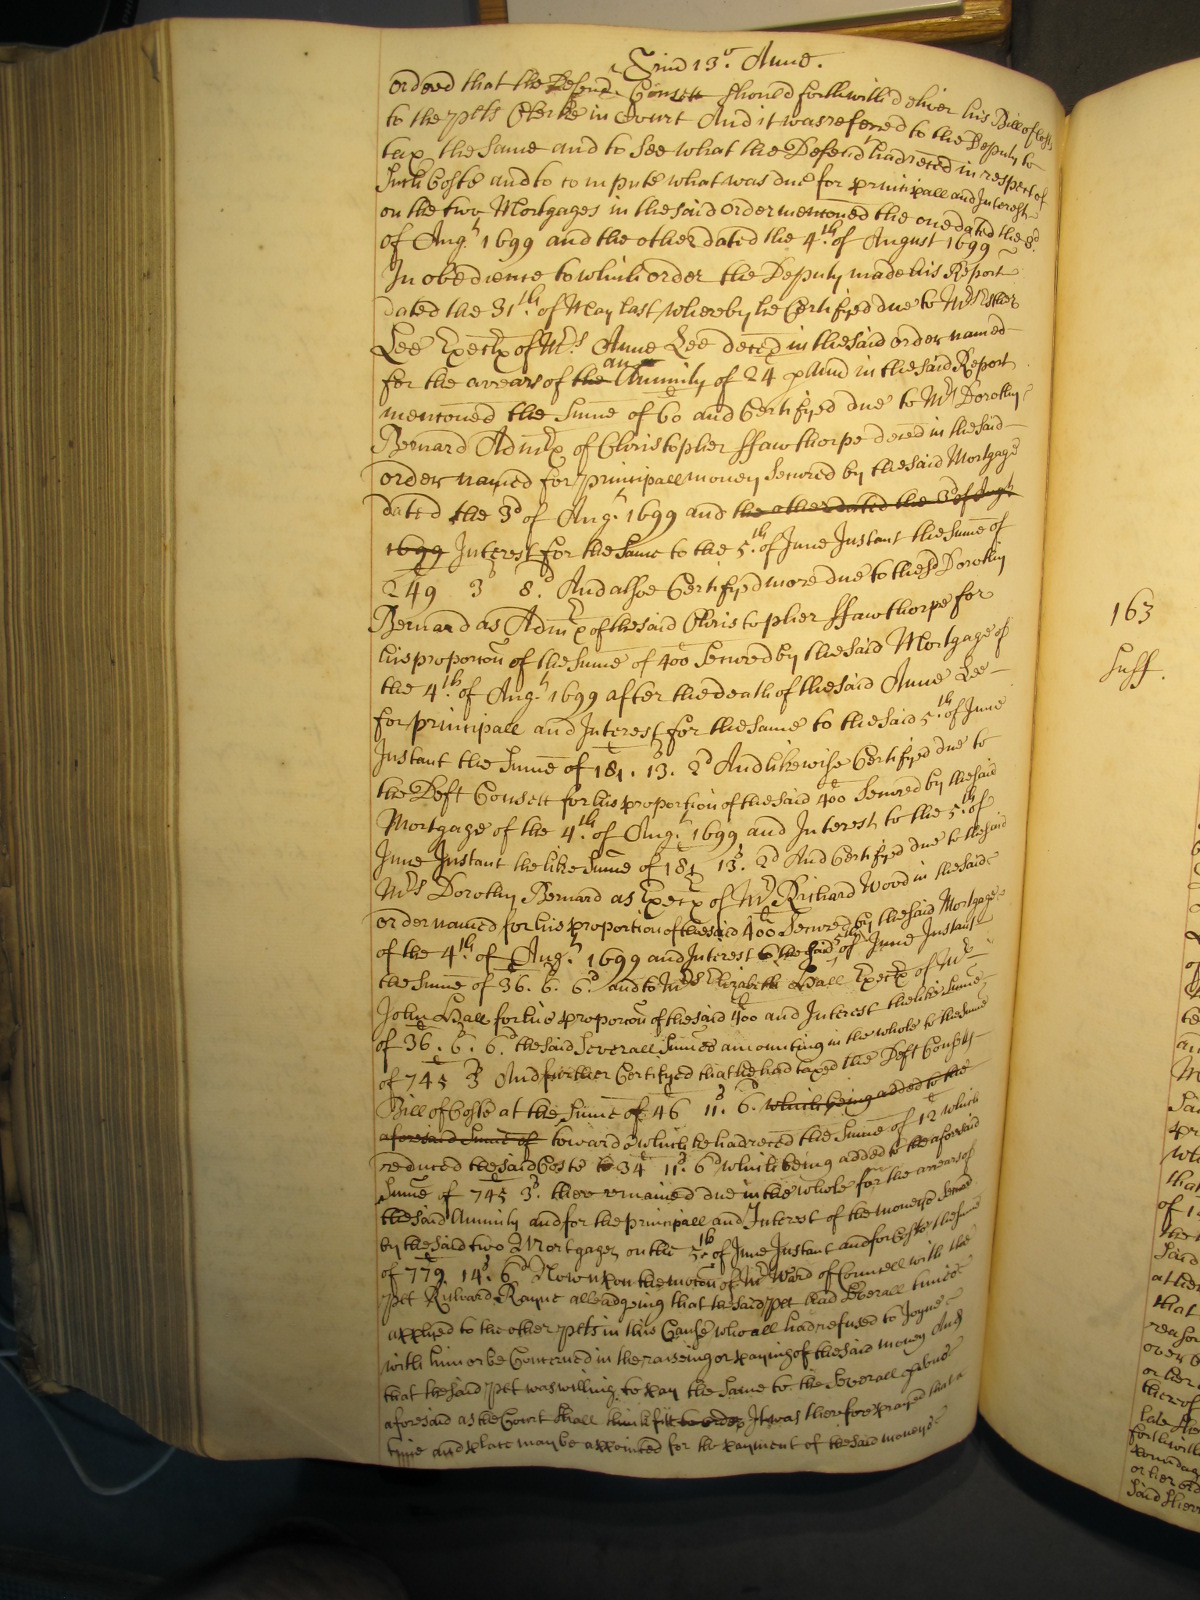 Trin 13º. Anne.
ordered that the Defend.t Consett should forthwith deliver his Bill of Costs
to the plts Clerke in Court And it was referred to the Deputy to
tax the same and to see what the Defend.t had reced in respect of
such Coste and to compute what was due for principall and Interest
on the two Mortgages in the said order menconed the one dated the 3d
of Aug.t 1699 and the other dated the 4.th of August 1699
In obedience to which order the Deputy made his Report
dated the 31.th of May last whereby he Certifyed due to Mrs Esther
Lee Execx of Mrs Anne Lee deced in the said order named
for the arears of the an Annuity of 24 p Ann in the said Report
menconed the Sume of 60 and Certifyed due to Mrs Dorothy
Bernard Admx of Christopher ffawthorpe deced in the said
order named for principall money secured by the said Mortgage
dated the 3d of Aug.t 1699 and the other dated the 3d of Aug.t
1699 Interest for the same to the 5.th of June Instant the sume of
249 3s 8.d And alsoe Certifyd more due to the sd Dorothy
Bernard as Admx of the said Christopher ffawthorpe for
his proporcon of the sume of 400 secured by the said Mortgage of
the 4.th of Aug.t 1699 after the death of the said Anne Lee
for principall and Interest for the same to the said 5.th of June
Instant the Sume of 181. 13. 2d And likewise Certifyed due to
the Deft Consett for his proportion of the said 400 secured by the said
Mortgage of the 4.th of Aug.t 1699 and Interest to the 5.th of
June Instant the like sume of 181 13s. 2d And Certifyed due to the said
Mrs Dorothy Bernard as Execx of Mr Richard Wood in the said
order named for his proportion of the said 400 Secured by the said Mortgage
of the 4.th of Aug.t 1699 and Interest to the said 5th of June Instant
the Sume of 36. 6. 6.d and to Mrs Elizabeth Hall Execx of Mr
John Hall for his proporcon of the said 400 and Interest the like sume
of 36. 6. 6.d the said severall sumes amounting in the whole to the sume
of 745 3s And further Certifyed that he had taxed the Deft Consetts
Bill of Coste at the sume of 46 11s. 6. which being added to the
aforesaid sume of towards which he had reced the sume of 12 which
reduced the said Coste to 34 11s. 6d which being added to the aforesaid
Sume of 745 3s. there remained due in the whole for the arears of
the said Annuity and for the principall and Interest of the moneys secured
by the said two Mortgages on the 5th of June Instant and for Coste the sume
of 779. 14s. 6d Now upon the mocon of Mr Ward of Councell with the
plt Kayne alleadgeing that he said plt had severall times
applyed to the other plts in this Cause who all had refused to Joyne
with him or be Concerned in the raiseing or paying of the said money And
that the said plt was willing to pay the same to the severall psons
aforesaid as the Court shall thinke fitt to order It was therefore prayed that a
time and place may be appointed for the payment of the said moneys
163
Suff.